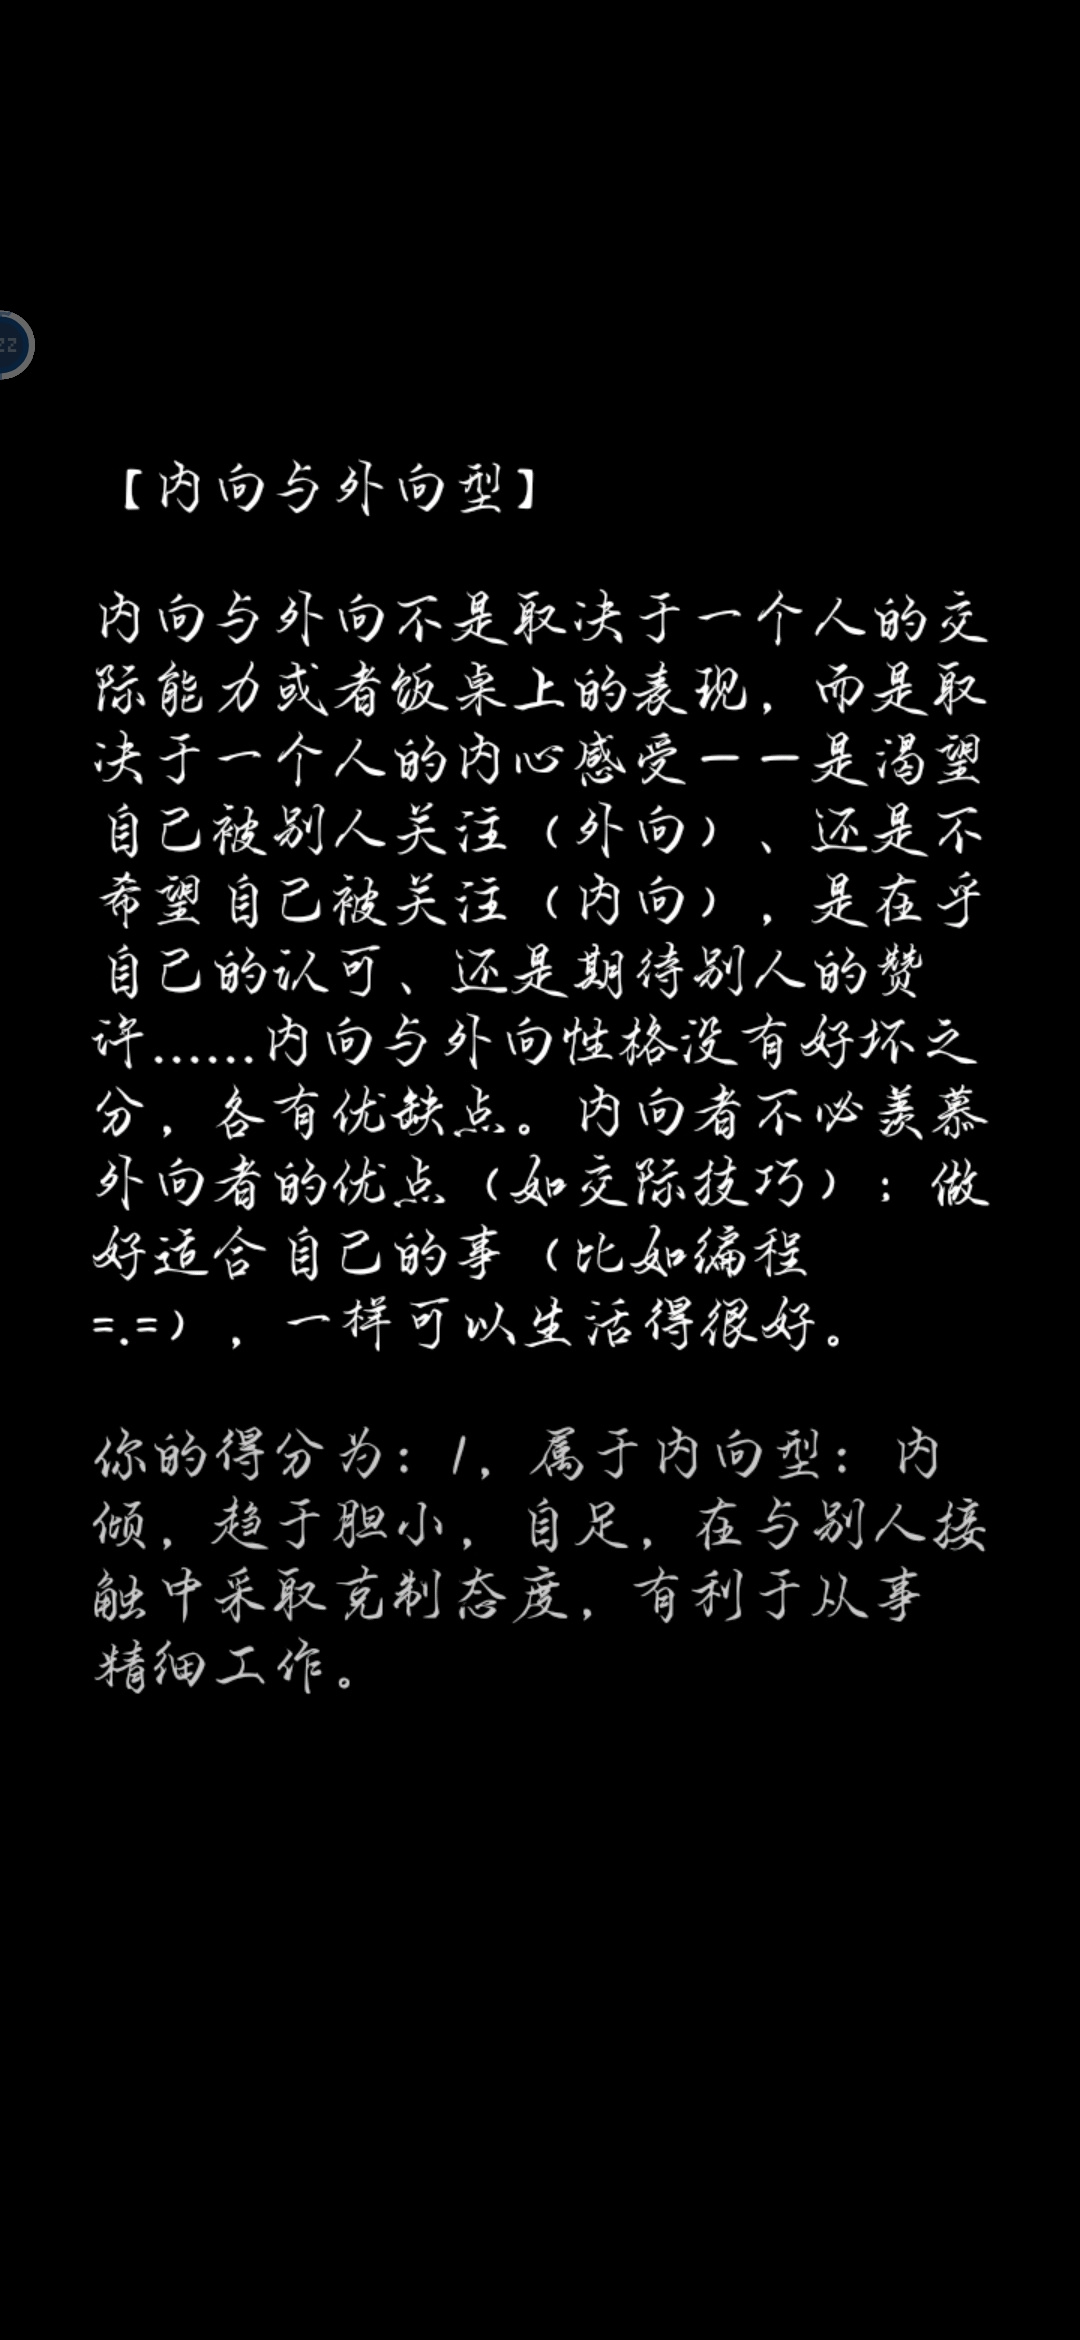 zz
【内向与外向型】
内向与外向不是取决于一个人的交
际能力或者饭桌上的表现，而是取
决于一个人的内心感受——是渴望
自己被别人关注（外向）、还是不
希望自己被关注（内向），是在乎
自己的认可、还是期待别人的赞
许......内向与外向性格没有好坏之
分，各有优缺点。内向者不必羡慕
外向者的优点（如交际技巧）；做
好适合自己的事（比如编程
=.=），一样可以生活得很好。
你的得分为：1，属于内向型：内
倾，趋于胆小，自足，在与别人接
触中采取克制态度，有利于从事
精细工作。